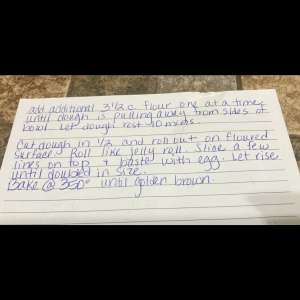 add additional 3 1/2 c flour one at a time,
until dough is pulling away from sides of
bowl. Let dough rest 10 mins.
Cut dough in 1/2 and roll out on floured
surface. Roll like jelly roll. Slice a few
lines on top + baste with egg. Let rise
until doubled in size.
Bake @ 350° until golden brown.